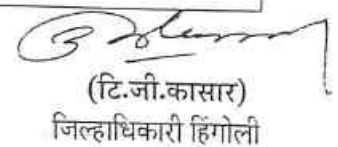 (टि.जी.कासार)
जिल्हाधिकारी हिंगोली